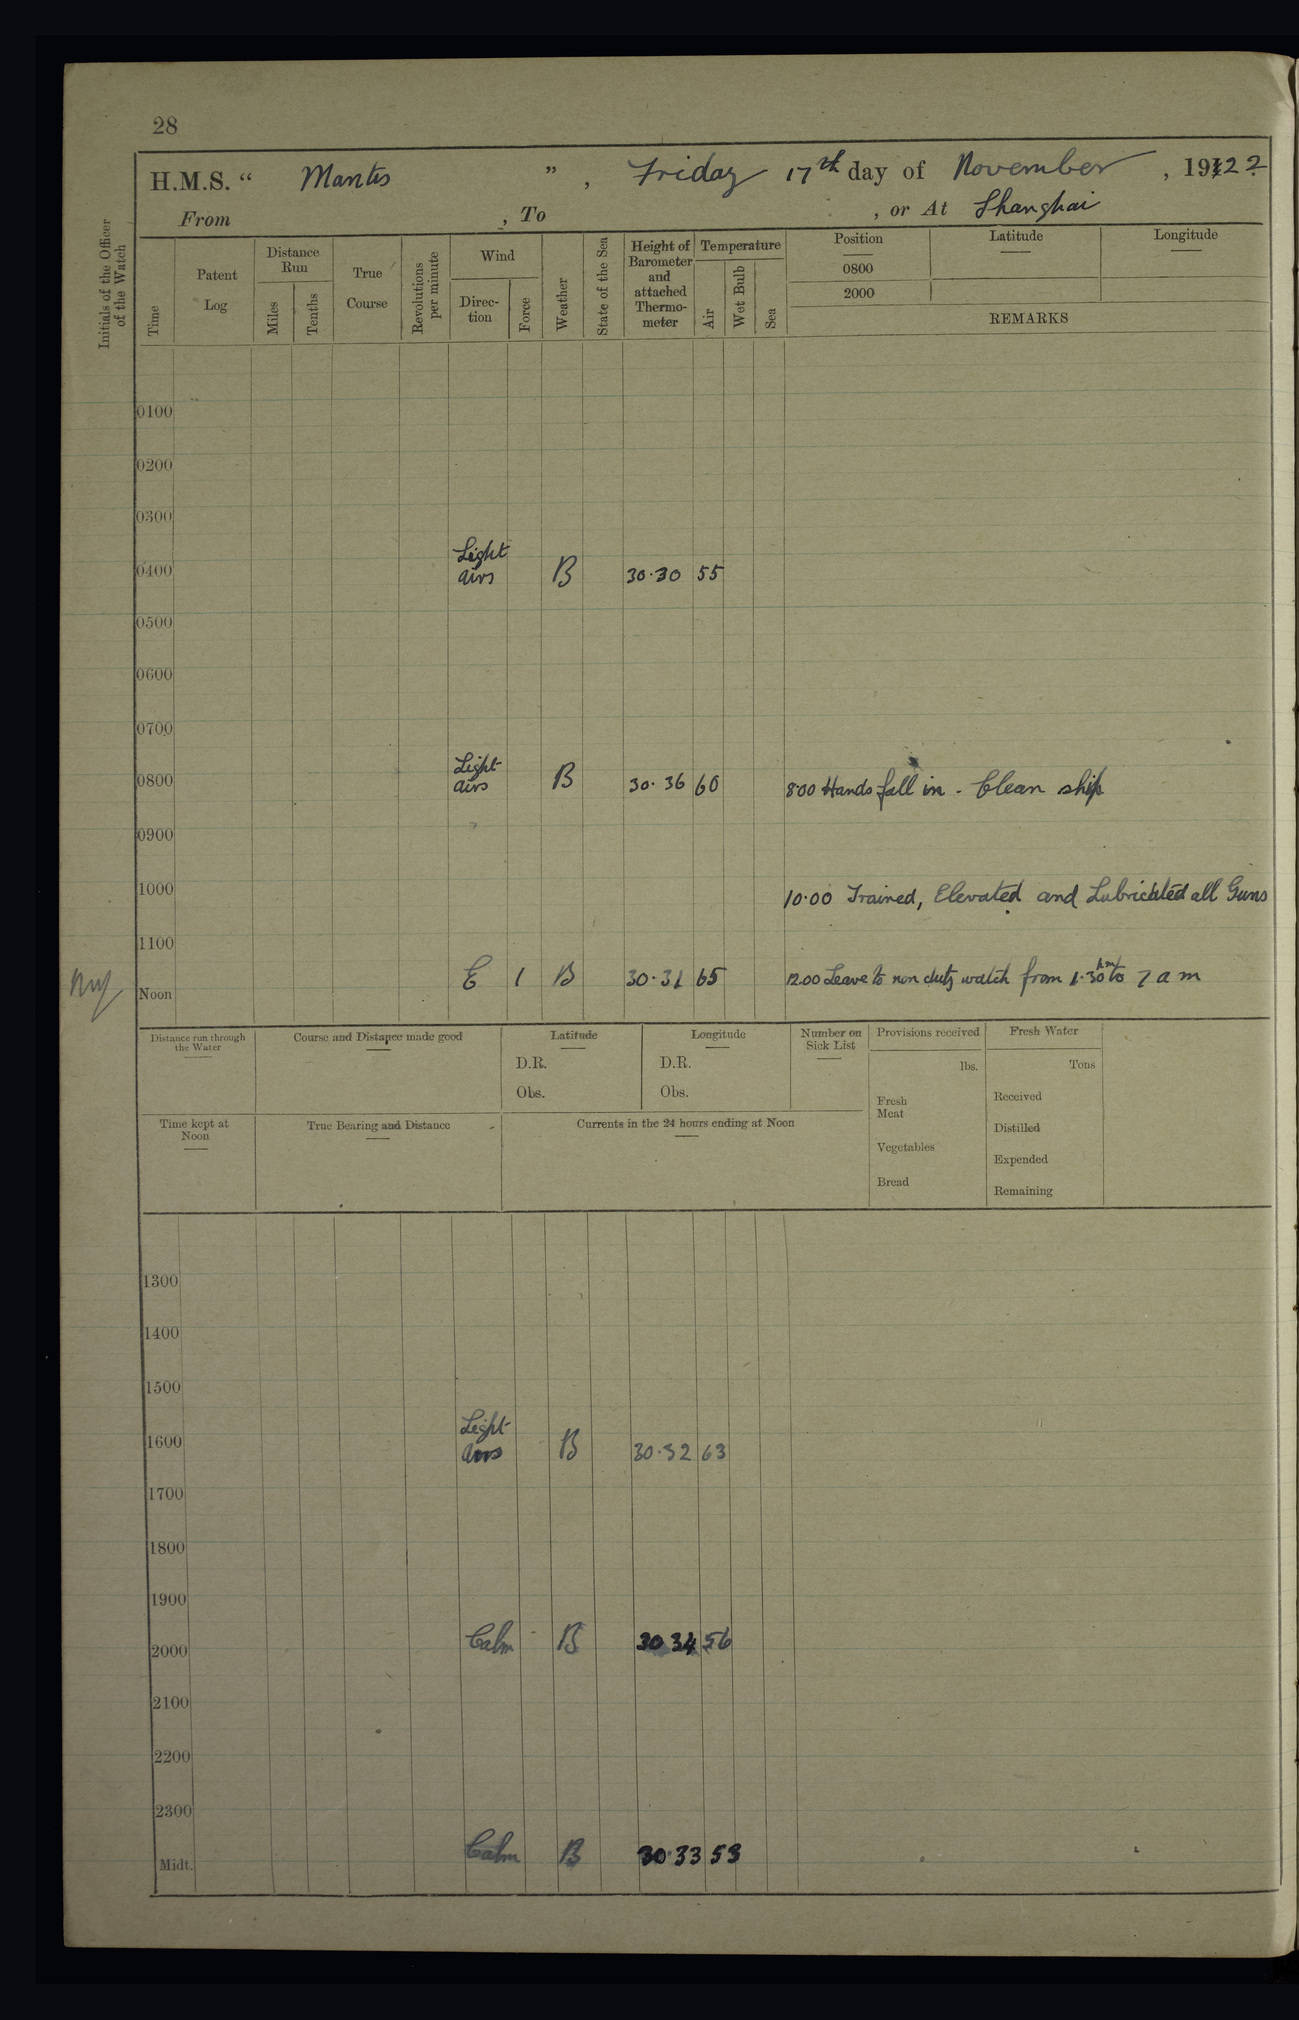 28
H.M.S. “ Mantis ” , Friday 17th day of November , 1922
From , To , or At Shanghai
Initials of the Officer of the Watch
Time
Patent Log
Distance Run
Miles
Tenths
True Course
Revolutions per minute
Wind
Direc-tion
Force
Weather
State of the Sea
Height of Barometer and attached Thermo-meter
Temperature
Air
Wet Bulb
Sea
Position
0800
2000
Latitude
Longitude
REMARKS
0100
0200
0300
0400 Light airs B 30·30 55
0500
0600
0700
0800 Light airs B 30·36 60 8·00 Hands fall in - Clean ship
0900
1000 10·00 Trained, Elevated and Lubricated all Guns
1100
Noon E 1 B 30·31 65 12.00 Leave to non duty watch from 1·30 pm to 7 a m
Distance run through the Water
Course and Distance made good
Latitude
D.R.
Obs.
Longitude
D.R.
Obs.
Number on Sick List
Provisions received
lbs.
Fresh Meat
Vegetables
Bread
Fresh Water
Tons
Received
Distilled
Expended
Remaining
Time kept at Noon
True Bearing and Distance
Currents in the 24 hours ending at Noon
1300
1400
1500
1600 Light airs B 30·32 63
1700
1800
1900
2000 Calm - B 30 34 56
2100
2200
2300
Midt. Calm B 30·33 53